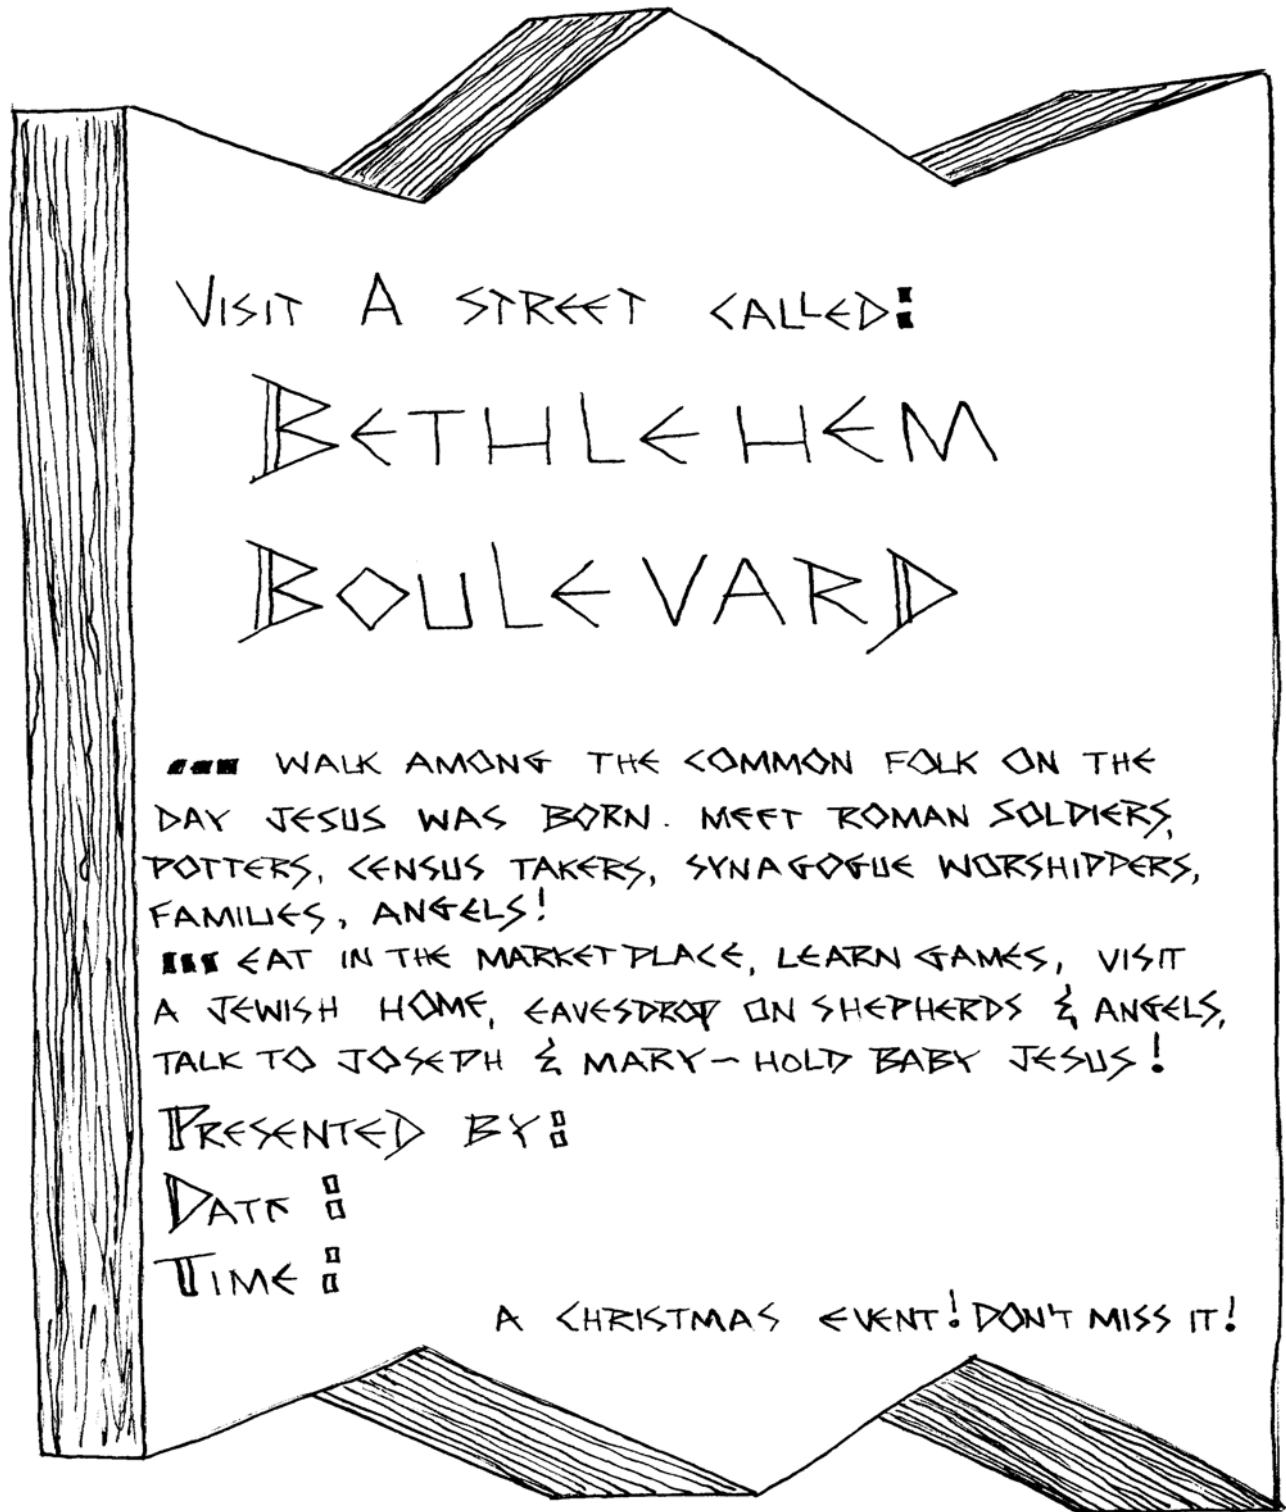 VISIT A STREET CALLED:
BETHLEHEM
BOULEVARD
... WALK AMONG THE COMMON FOLK ON THE
DAY JESUS WAS BORN. MEET ROMAN SOLDIERS,
POTTERS, CENSUS TAKERS, SYNAGOGUE WORSHIPPERS,
FAMILIES, ANGELS!
... EAT IN THE MARKET PLACE, LEARN GAMES, VISIT
A JEWISH HOME, EAVESDROP ON SHEPHERDS & ANGELS,
TALK TO JOSEPH & MARY - HOLD BABY JESUS!
PRESENTED BY:
DATE:
TIME:
A CHRISTMAS EVENT! DON'T MISS IT!